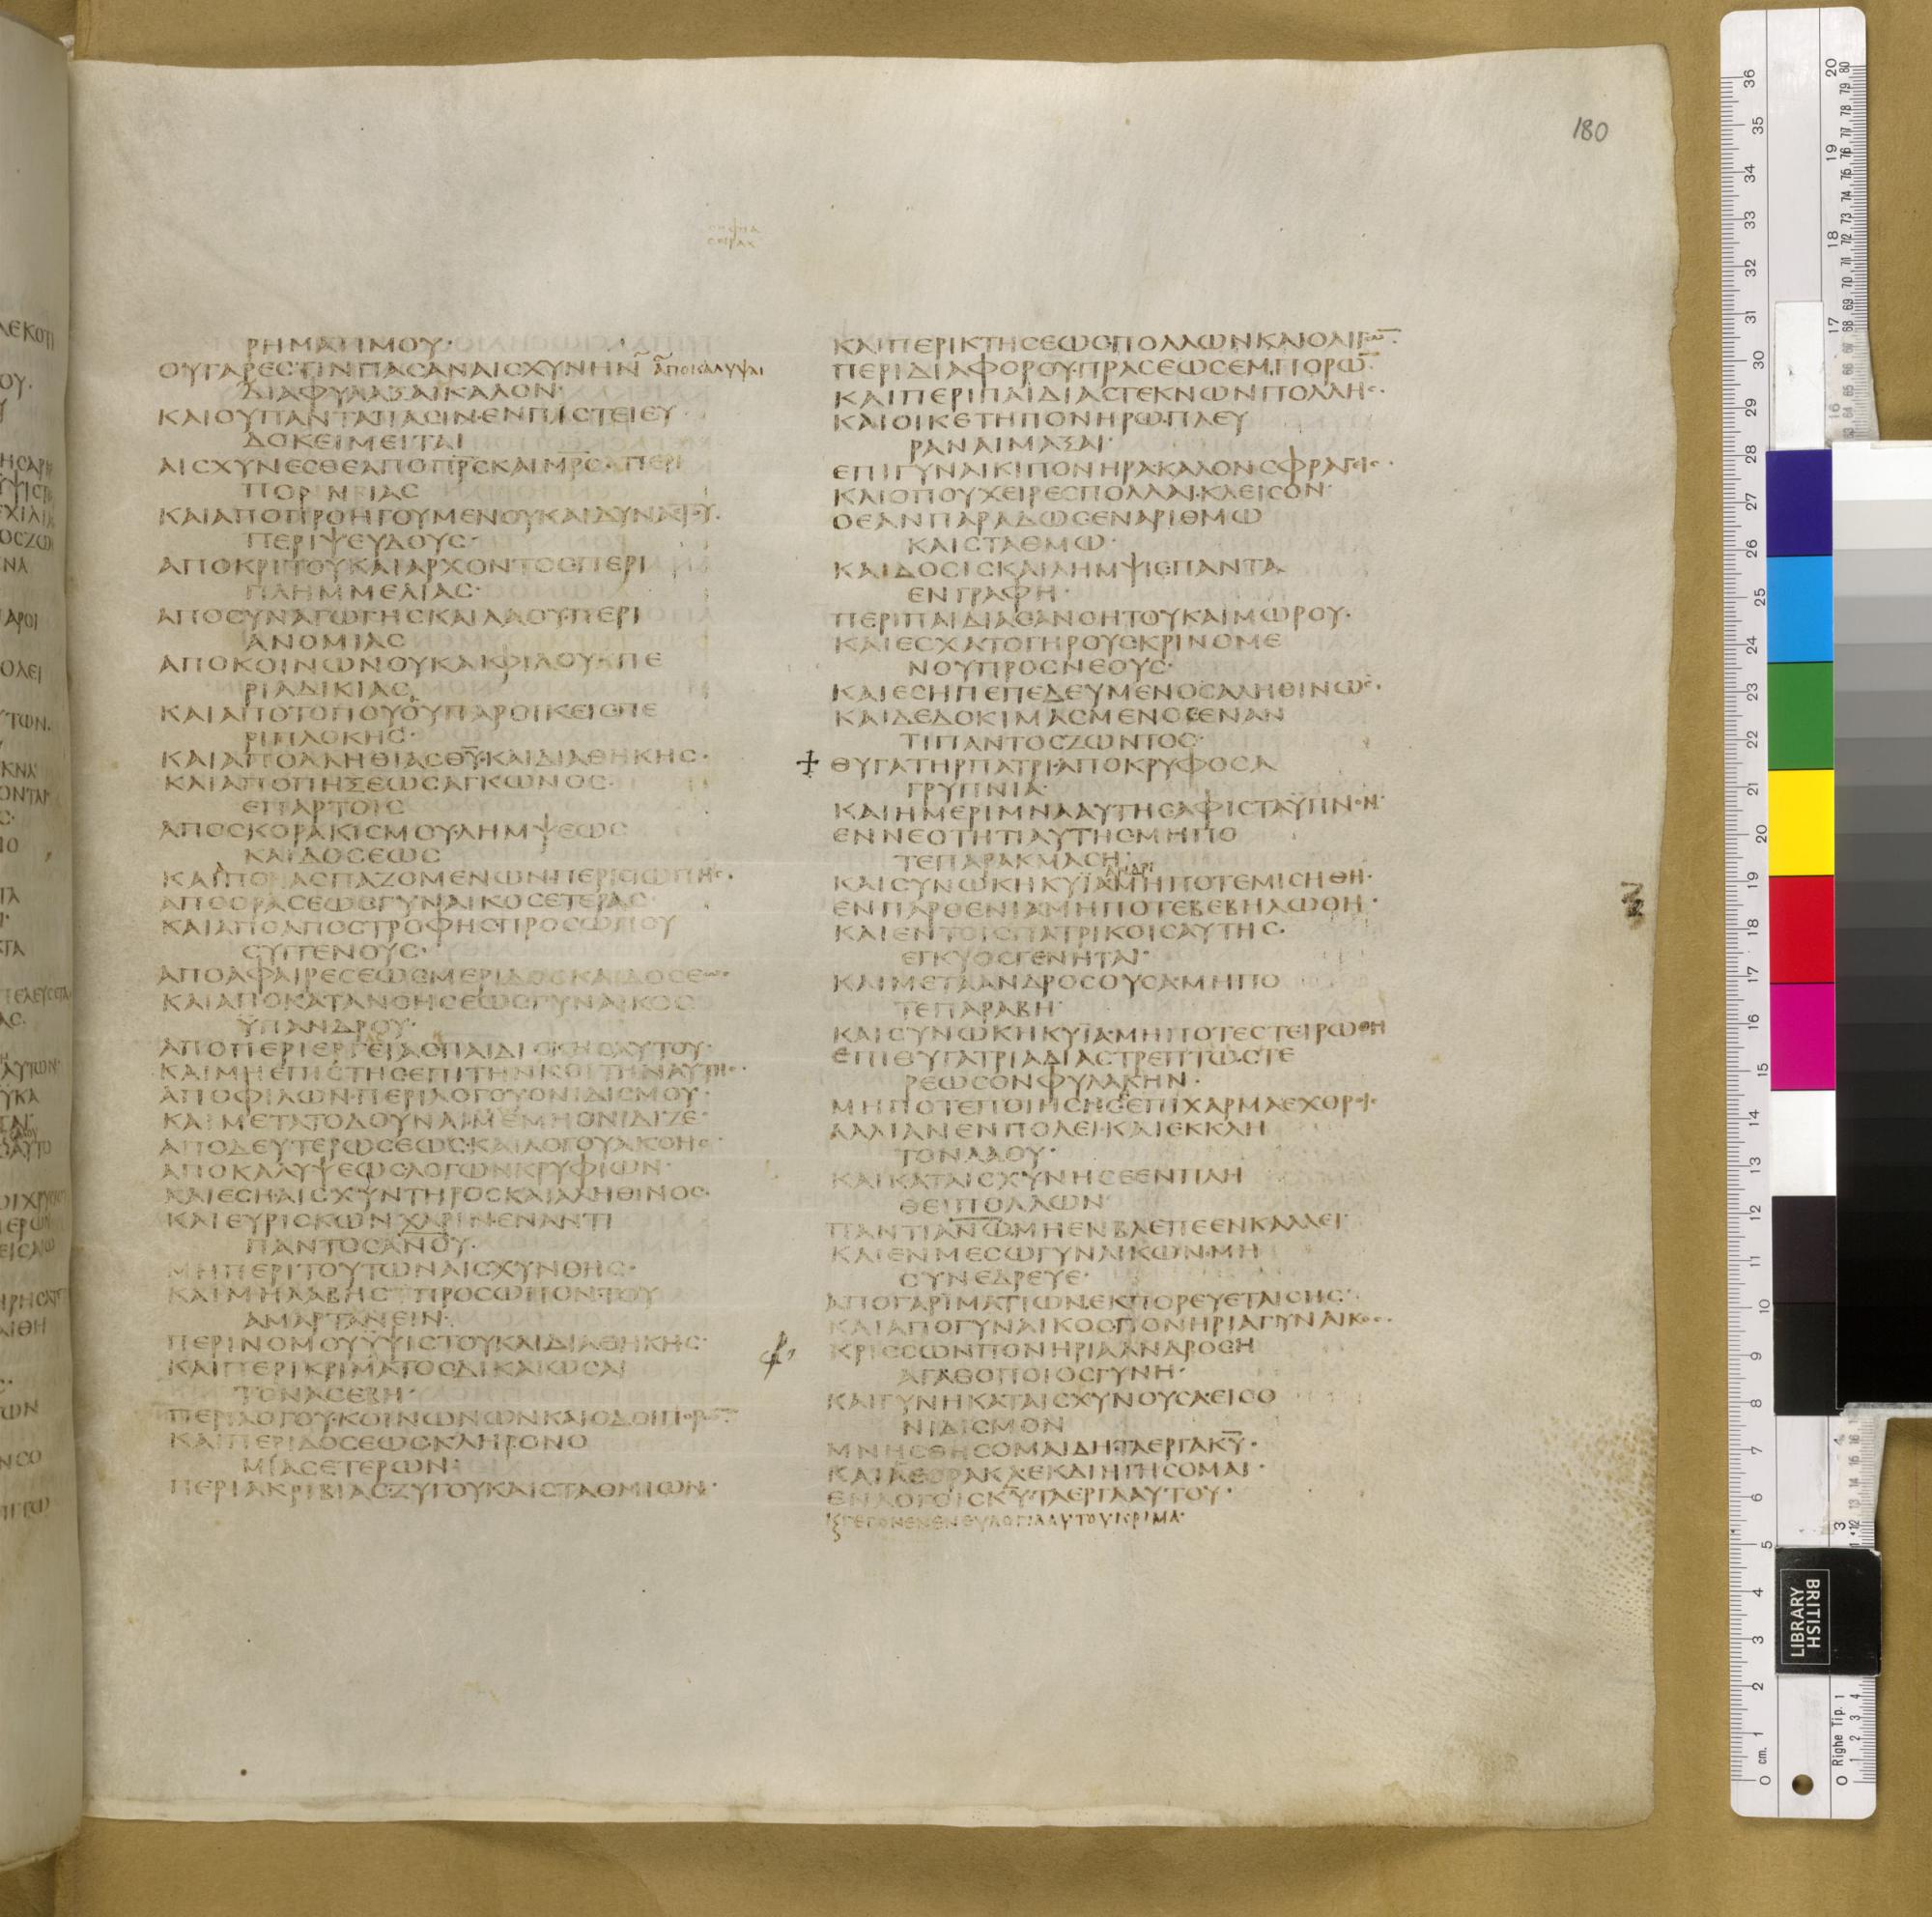 180
ΡΗΜΑΤΙΜΟΥ·
ΟΥΓΑΡΕϹΤΙΝΠΑϹΑΝΑΙϹΧΥΝΗΝ ἀποκαλυψαι
ΔΙΑΦΥΛΑΞΑΙΚΑΛΟΝ·
ΚΑΙΟΥΠΑΝΤΑΠΑϹΙΝΕΝΠΙϹΤΕΙΕΥ
ΔΟΚΕΙΜΕΙΤΑΙ
ΑΙϹΧΥΝΕϹΘΕΑΠΟΠΡ̅Ϲ̅ΚΑΙΜΡ̅Ϲ̅ΠΕΡΙ
ΠΟΡΝΙΑϹ
ΚΑΙΑΠΟΠΡΟΗΓΟΥΜΕΝΟΥΚΑΙΔΥΝΑϹΤΟΥ·
ΠΕΡΙΨΕΥΔΟΥϹ·
ΑΠΟΚΡΙΤΟΥΚΑΙΑΡΧΟΝΤΟϹΠΕΡΙ
ΠΛΗΜΜΕΛΙΑϹ·
ΑΠΟϹΥΝΑΓΩΓΗϹΚΑΙΛΑΟΥΠΕΡΙ
ΑΝΟΜΙΑϹ
ΑΠΟΚΟΙΝΩΝΟΥΚΑΙΦΙΛΟΥ·ΠΕ
ΡΙΑΔΙΚΙΑϹ
ΚΑΙΑΠΟΤΟΠΟΥΟΥΠΑΡΟΙΚΕΙϹΠΕ
ΡΙΚΛΟΠΗϹ·
ΚΑΙΑΠΟΑΛΗΘΙΑϹΘ̅Υ̅·ΚΑΙΔΙΑΘΗΚΗϹ·
ΚΑΙΑΠΟΠΗΞΕΩϹΑΓΚΩΝΟϹ·
ΕΠΑΡΤΟΙϹ
ΑΠΟϹΚΟΡΑΚΙϹΜΟΥ·ΛΗΜΨΕΩϹ
ΚΑΙΔΟϹΕΩϹ
ΚΑΙΑΠΟΑϹΠΑΖΟΜΕΝΩΝ·ΠΕΡΙϹΙΩΠΗϹ·
ΑΠΟΟΡΑϹΕΩϹΓΥΝΑΙΚΟϹΕΤΕΡΑϹ·
ΚΑΙΑΠΟΑΠΟϹΤΡΟΦΗϹΠΡΟϹΩΠΟΥ
ϹΥΓΓΕΝΟΥϹ·
ΑΠΟΑΦΑΙΡΕϹΕΩϹΜΕΡΙΔΟϹΚΑΙΔΟϹΕΩϹ·
ΚΑΙΑΠΟΚΑΤΑΝΟΗϹΕΩϹΓΥΝΑΙΚΟϹ
ΫΠΑΝΔΡΟΥ·
ΑΠΟΠΕΡΙΕΡΓΕΙΑϹΠΑΙΔΙϹΚΗϹΑΥΤΟΥ·
ΚΑΙΜΗΕΠΙϹΤΗϹΕΠΙΤΗΝΚΟΙΤΗΝΑΥΤΗϹ·
ΑΠΟΦΙΛΩΝ·ΠΕΡΙΛΟΓΟΥΟΝΙΔΙϹΜΟΥ·
ΚΑΙΜΕΤΑΤΟΔΟΥΝΑΙΜΕΜΗΟΝΙΔΙΖΕ·
ΑΠΟΔΕΥΤΕΡΩϹΕΩϹ·ΚΑΙΛΟΓΟΥΑΚΟΗϹ·
ΑΠΟΚΑΛΥΨΕΩϹΛΟΓΩΝΚΡΥΦΙΩΝ·
ΚΑΙΕϹΗΑΙϹΧΥΝΤΗΡΟϹΚΑΙΑΛΗΘΙΝΟϹ·
ΚΑΙΕΥΡΙϹΚΩΝΧΑΡΙΝΕΝΑΝΤΙ
ΠΑΝΤΟϹΑ̅Ν̅Ο̅Υ̅·
ΜΗΠΕΡΙΤΟΥΤΩΝΑΙϹΧΥΝΘΗϹ·
ΚΑΙΜΗΛΑΒΗϹΠΡΟϹΩΠΟΝΤΟΥ
ΑΜΑΡΤΑΝΕΙΝ·
ΠΕΡΙΝΟΜΟΥΫΨΙϹΤΟΥΚΑΙΔΙΑΘΗΚΗϹ·
ΚΑΙΠΕΡΙΚΡΙΜΑΤΟϹΔΙΚΑΙΩϹΑΙ
ΤΟΝΑϹΕΒΗ·
ΠΕΡΙΛΟΓΟΥ·ΚΟΙΝΩΝΩΝΚΑΙΟΔΟΙΠΟΡΩ̅·
ΚΑΙΠΕΡΙΔΟϹΕΩϹΚΛΗΡΟΝΟ
ΜΙΑϹΕΤΕΡΩΝ·
ΠΕΡΙΑΚΡΙΒΙΑϹΖΥΓΟΥΚΑΙϹΤΑΘΜΙΩΝ·
ΚΑΙΠΕΡΙΚΤΗϹΕΩϹΠΟΛΛΩΝΚΑΙΟΛΙΓΩ̅·
ΠΕΡΙΔΙΑΦΟΡΟΥ·ΠΡΑϹΕΩϹΕΜΠΟΡΩ̅·
ΚΑΙΠΕΡΙΠΑΙΔΙΑϹΤΕΚΝΩΝΠΟΛΛΗϹ·
ΚΑΙΟΙΚΕΤΗΠΟΝΗΡΩ·ΠΛΕΥ
ΡΑΝΑΙΜΑΞΑΙ·
ΕΠΙΓΥΝΑΙΚΙΠΟΝΗΡΑΚΑΛΟΝϹΦΡΑΓΙϹ·
ΚΑΙΟΠΟΥΧΕΙΡΕϹΠΟΛΛΑΙ·ΚΛΕΙϹΟΝ·
ΟΕΑΝΠΑΡΑΔΩϹΕΝΑΡΙΘΜΩ
ΚΑΙϹΤΑΘΜΩ·
ΚΑΙΔΟϹΙϹΚΑΙΛΗΜΨΙϹΠΑΝΤΑ
ΕΝΓΡΑΦΗ·
ΠΕΡΙΠΑΙΔΙΑϹΑΝΟΗΤΟΥΚΑΙΜΩΡΟΥ·
ΚΑΙΕϹΧΑΤΟΓΗΡΟΥϹΚΡΙΝΟΜΕ
ΝΟΥΠΡΟϹΝΕΟΥϹ·
ΚΑΙΕϹΗΠΕΠΕΔΕΥΜΕΝΟϹΑΛΗΘΙΝΩϹ·
ΚΑΙΔΕΔΟΚΙΜΑϹΜΕΝΟϹΕΝΑΝ
ΤΙΠΑΝΤΟϹΖΩΝΤΟϹ·
ΘΥΓΑΤΗΡΠΑΤΡΙ·ΑΠΟΚΡΥΦΟϹΑ
ΓΡΥΠΝΙΑ·
ΚΑΙΗΜΕΡΙΜΝΑΑΥΤΗϹΑΦΙϹΤΑΫΠΝΟΝ·
ΕΝΝΕΟΤΗΤΙΑΥΤΗϹΜΗΠΟ
ΤΕΠΑΡΑΚΜΑϹΗ·
ΚΑΙϹΥΝΩΚΗΚΥΪΑΜΗΠΟΤΕΜΙϹΗΘΗ·
ΕΝΠΑΡΘΕΝΙΑΜΗΠΟΤΕΒΕΒΗΛΩΘΗ·
ΚΑΙΕΝΤΟΙϹΠΑΤΡΙΚΟΙϹΑΥΤΗϹ·
ΕΓΚΥΟϹΓΕΝΗΤΑΙ·
ΚΑΙΜΕΤΑΑΝΔΡΟϹΟΥϹΑ·ΜΗΠΟ
ΤΕΠΑΡΑΒΗ·
ΚΑΙϹΥΝΩΚΗΚΥΪΑ·ΜΗΠΟΤΕϹΤΕΙΡΩΘΗ
ΕΠΙΘΥΓΑΤΡΙΑΔΙΑϹΤΡΕΠΤΩϹΤΕ
ΡΕΩϹΟΝΦΥΛΑΚΗΝ·
ΜΗΠΟΤΕΠΟΙΗϹΗϹΕΠΙΧΑΡΜΑΕΧΘΡΟΙ·
ΛΑΛΙΑΝΕΝΠΟΛΕΙ·ΚΑΙΕΚΚΛΗ
ΤΟΝΛΑΟΥ·
ΚΑΙΚΑΤΑΙϹΧΥΝΗϹΕΕΝΠΛΗ
ΘΕΙΠΟΛΛΩΝ·
ΠΑΝΤΙΑ̅Ν̅Ω̅ΜΗΕΝΒΛΕΠΕΕΝΚΑΛΛΕΙ·
ΚΑΙΕΝΜΕϹΩΓΥΝΑΙΚΩΝ·ΜΗ
ϹΥΝΕΔΡΕΥΕ·
ΑΠΟΓΑΡΙΜΑΤΙΩΝ·ΕΚΠΟΡΕΥΕΤΑΙϹΗϹ·
ΚΑΙΑΠΟΓΥΝΑΙΚΟϹΠΟΝΗΡΙΑΓΥΝΑΙΚΟϹ·
ΚΡΙϹϹΩΝΠΟΝΗΡΙΑΑΝΔΡΟϹΗ
ΑΓΑΘΟΠΟΙΟϹΓΥΝΗ·
ΚΑΙΓΥΝΗΚΑΤΑΙϹΧΥΝΟΥϹΑΕΙϹΟ
ΝΙΔΙϹΜΟΝ
ΜΝΗϹΘΗϹΟΜΑΙΔΗ·ΤΑΕΡΓΑΚ̅Υ̅·
ΚΑΙΑΕΟΡΑΚΑ·ΕΚΔΙΗΓΗϹΟΜΑΙ·
ΕΝΛΟΓΟΙϹΚ̅Υ̅ΤΑΕΡΓΑΑΥΤΟΥ·
ΓΕΓΟΝΕΝΕΝΕΥΛΟΓΙΑΑΥΤΟΥΚΡΙΜΑ·
BRITISH
LIBRARY